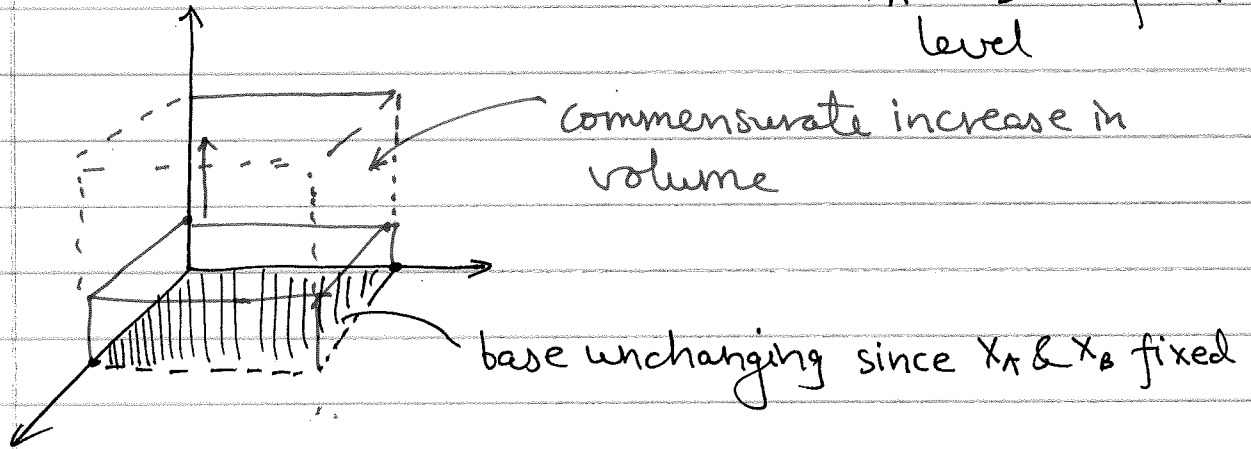 level
commensurate increase in
volume
base unchanging since XA & XB fixed